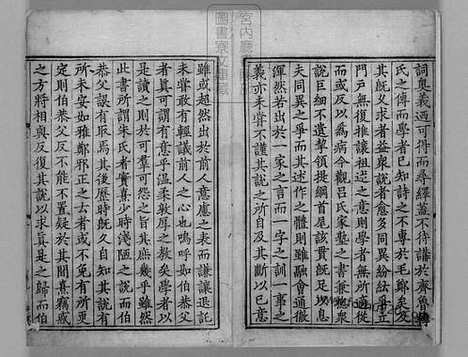 詞奧義廼可得而尋繹蓋不待講於齊魯韓
氏之傳而學者已知詩之不專於毛鄭矣及
其既久求者益衆說者愈多同異紛紜爭立
門戶無復推讓祖述之意則學者無所適從
而或反以爲病今觀呂氏家塾之書兼總衆
說巨細不遺挈領提綱首尾該貫既足以息
夫同異之爭而其述作之體則雖融會通徹
渾然若出於一家之言而一字之訓一事之
義亦未嘗不謹其說之所自及其斷以己意
雖或超然出於前人意慮之表而謙讓退託
未嘗敢有輕議前人之心也嗚呼如伯恭父
者真可謂有意乎溫柔敦厚之敎矣學者以
是讀之則於可羣可怨之旨其庶幾乎雖然
此書所謂朱氏者實熹少時淺陋之說而伯
恭父誤有取焉其後歷時既久自知其說有
所未安如雅鄭邪正之云者或不免有所更
定則伯恭父反不能不置疑於其間熹竊惑
之方將相與反復其說以求真是之歸而伯
宮内廳
圖書寮文庫藏